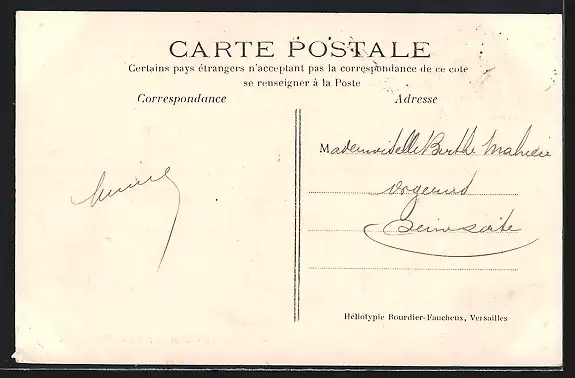 CARTE POSTALE
Certains pays étrangers n'acceptant pas la correspondance de ce coté
se renseigner à la Poste
Correspondance
Adresse
Mademoiselle Berthe
Héliotypie Bourdier-Faucheux, Versailles